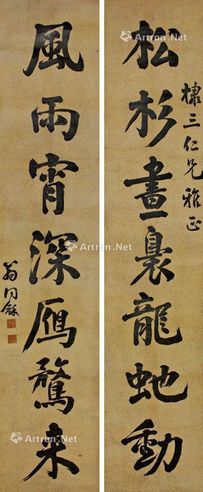 松杉晝裊龍虵動
棣三仁兄雅正
風雨宵深鴈驚来
翁同龢
Artron.Net
Artron.Net
Artron.Net
Artron.Net